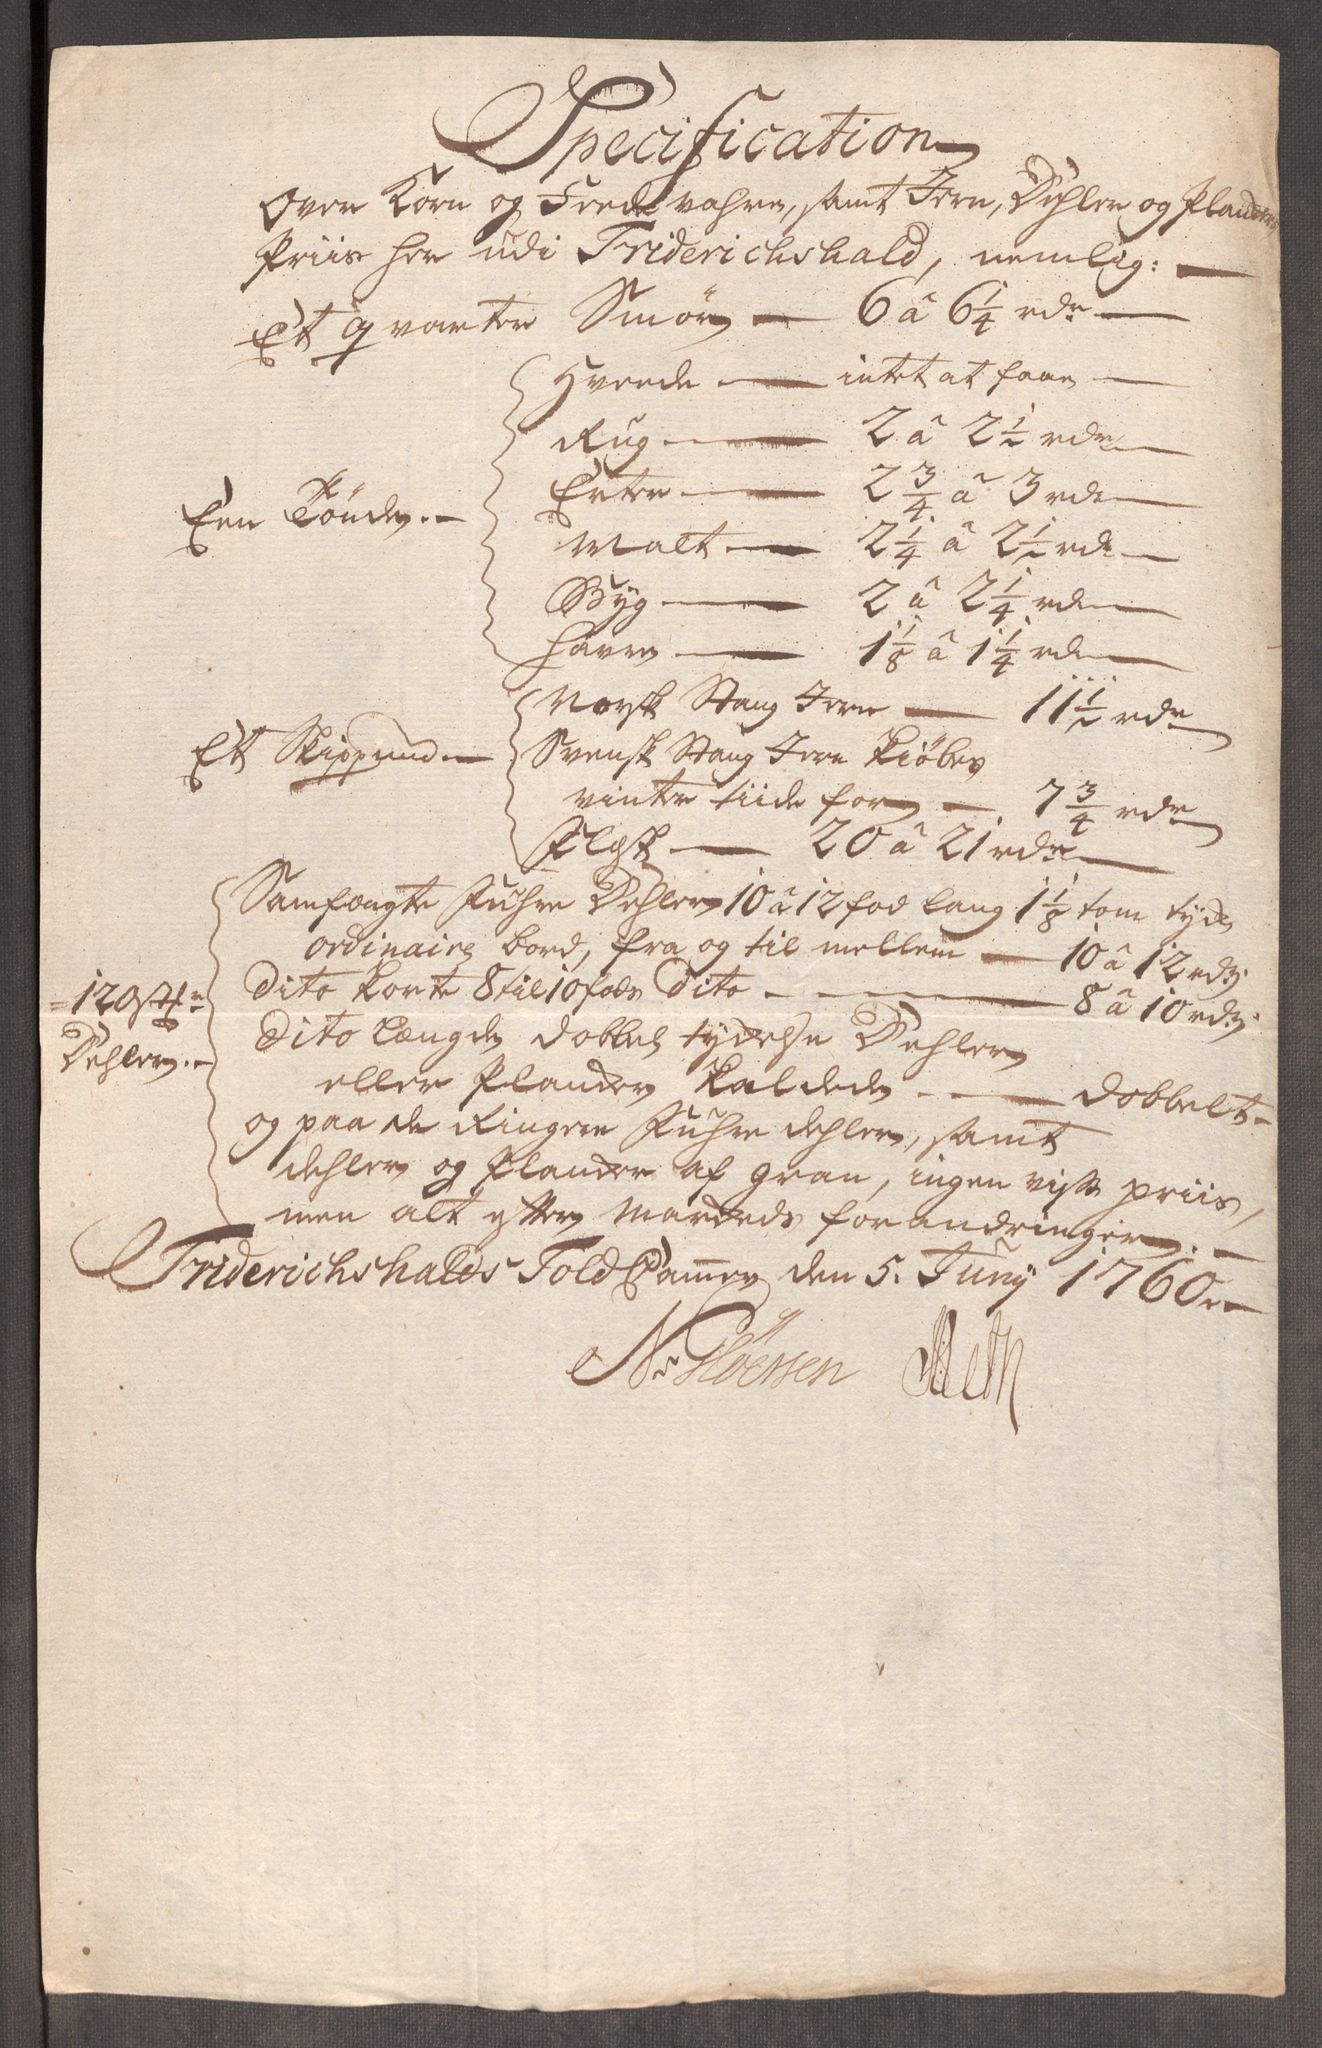 Specification
Over Korn og Feede vahre, samt Jern, Dehler og Plankers
Priis her udi Friderichshald, nemlig:
Et qvarteer Smör 6 â 6 1/4 rdr
Hveede intet at faae
Rug 2 â 2 1/2 rdr
Erter 2 3/4 â 3 rdr
Een Tönde
Malt 2 1/4 â 2 1/2 rdr
Byg 2 â 2 1/4 rdr
Havre 1 1/8 â 1 1/4 rdr
Norsk Stang Jern 11 1/2 rdr
Et Skippund Svensk Stang Jern kiöbes
vinter tiide for 7 3/4 rdr
Flesk 20 â 21 rdr
Samfængte Fuhre Dehler 10 â 12 fod lang 1 1/8 tom tyk
ordinaire bord, fra og til mellem 10 â 12 rdr
=120 st:r Dito korte 8 til 10 fods Dito 8 â 10 rdr
Dehler
Dito Længde dobbel tykkelse Dehler
eller Planker kaldede dobbelt
og paa de Ringere Fuhre dehler, samt
dehler og Planker af Gran, ingen visse priis,
men alt efter Markeds forandringer.
Friderichshalds Told Cammer den 5. Juny 1760